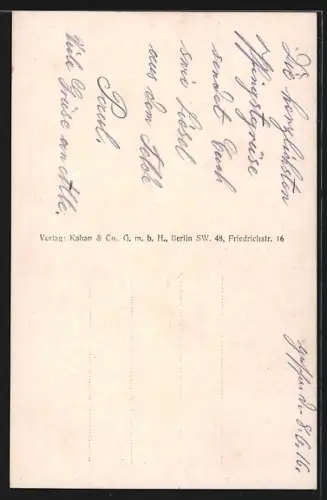 Die herzlichsten
Pfingstgrüße
sendet Euch
aus dem Felde
Paul.
Viele Grüße an Alle.
Verlag: Kahan & Co., G. m. b. H., Berlin SW. 48, Friedrichstr. 16
d. 8.6.16.